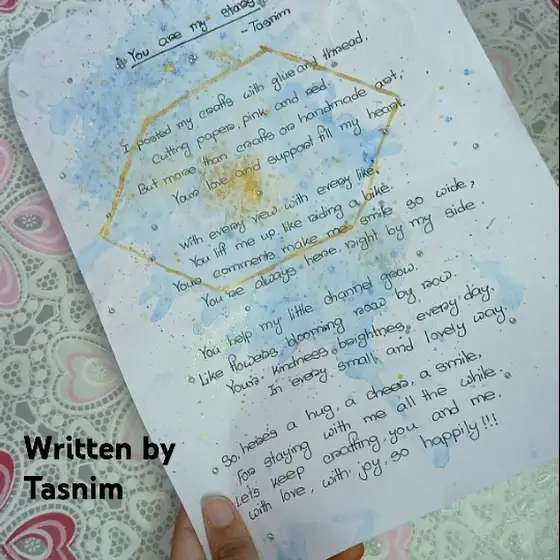 You are my story
- Tasnim
I posted my crafts with glue and thread,
Cutting papers, pink and red.
But more than crafts or handmade art,
Your love and support fill my heart.
with every view, with every like,
You lift me up, like riding a bike.
Your comments make me smile so wide,
You're always here right by my side.
You help my little channel grow.
Like flowers blooming row by row.
Your kindness brightness every day.
In every small and lovely way.
So, here's a hug, a cheer, a smile,
For staying with me all the while.
Let's keep crafting, you and me.
with love, with joy, so happily!!!
Written by
Tasnim